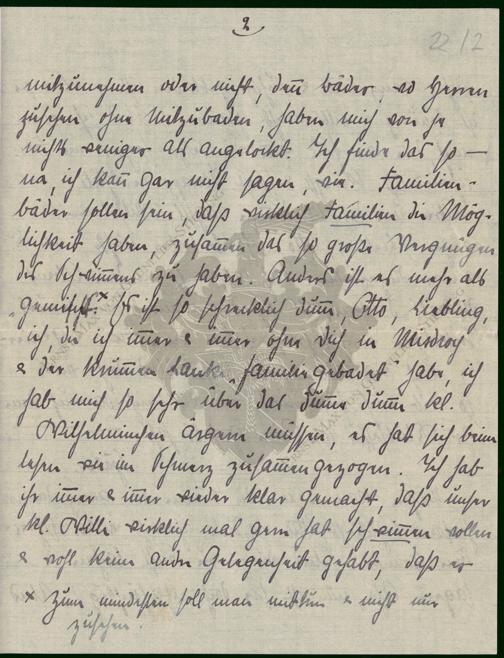 2
22/2
mitzunehmen oder nicht, deñ bäder, wo Herren
zusehen ohne Mitzubaden, haben mich von je
nichts weniger als angelockt. Ich finde das so —
na, ich kañ gar nicht sagen, wie. Familien-
bäder sollen sein, daß wirklich Familien die Mög-
lichkeit haben, zusam̃en das so große Vergnügen
des Schwim̃ens zu haben. Anders ist es mehr als
„gemischt".x Es ist so schrecklich dum̃, Otto, Liebling,
ich, die ich im̃er & im̃er ohne Dich in Misdroy
& der krummen Lanke „familiengebadet" habe, ich
hab mich so sehr über das dum̃e dum̃e kl.
Wilhelminchen ärgern müssen, es hat sich beim
lesen wie im Schmerz zusam̃engezogen. Ich hab
ihr im̃er & im̃er wieder klar gemacht, daß unser
kl. Willi wirklich mal gern hat schwim̃en wollen
& wohl keine andre Gelegenheit gehabt, daß er
x zum mindesten soll man mittun & nicht nur
zusehen.